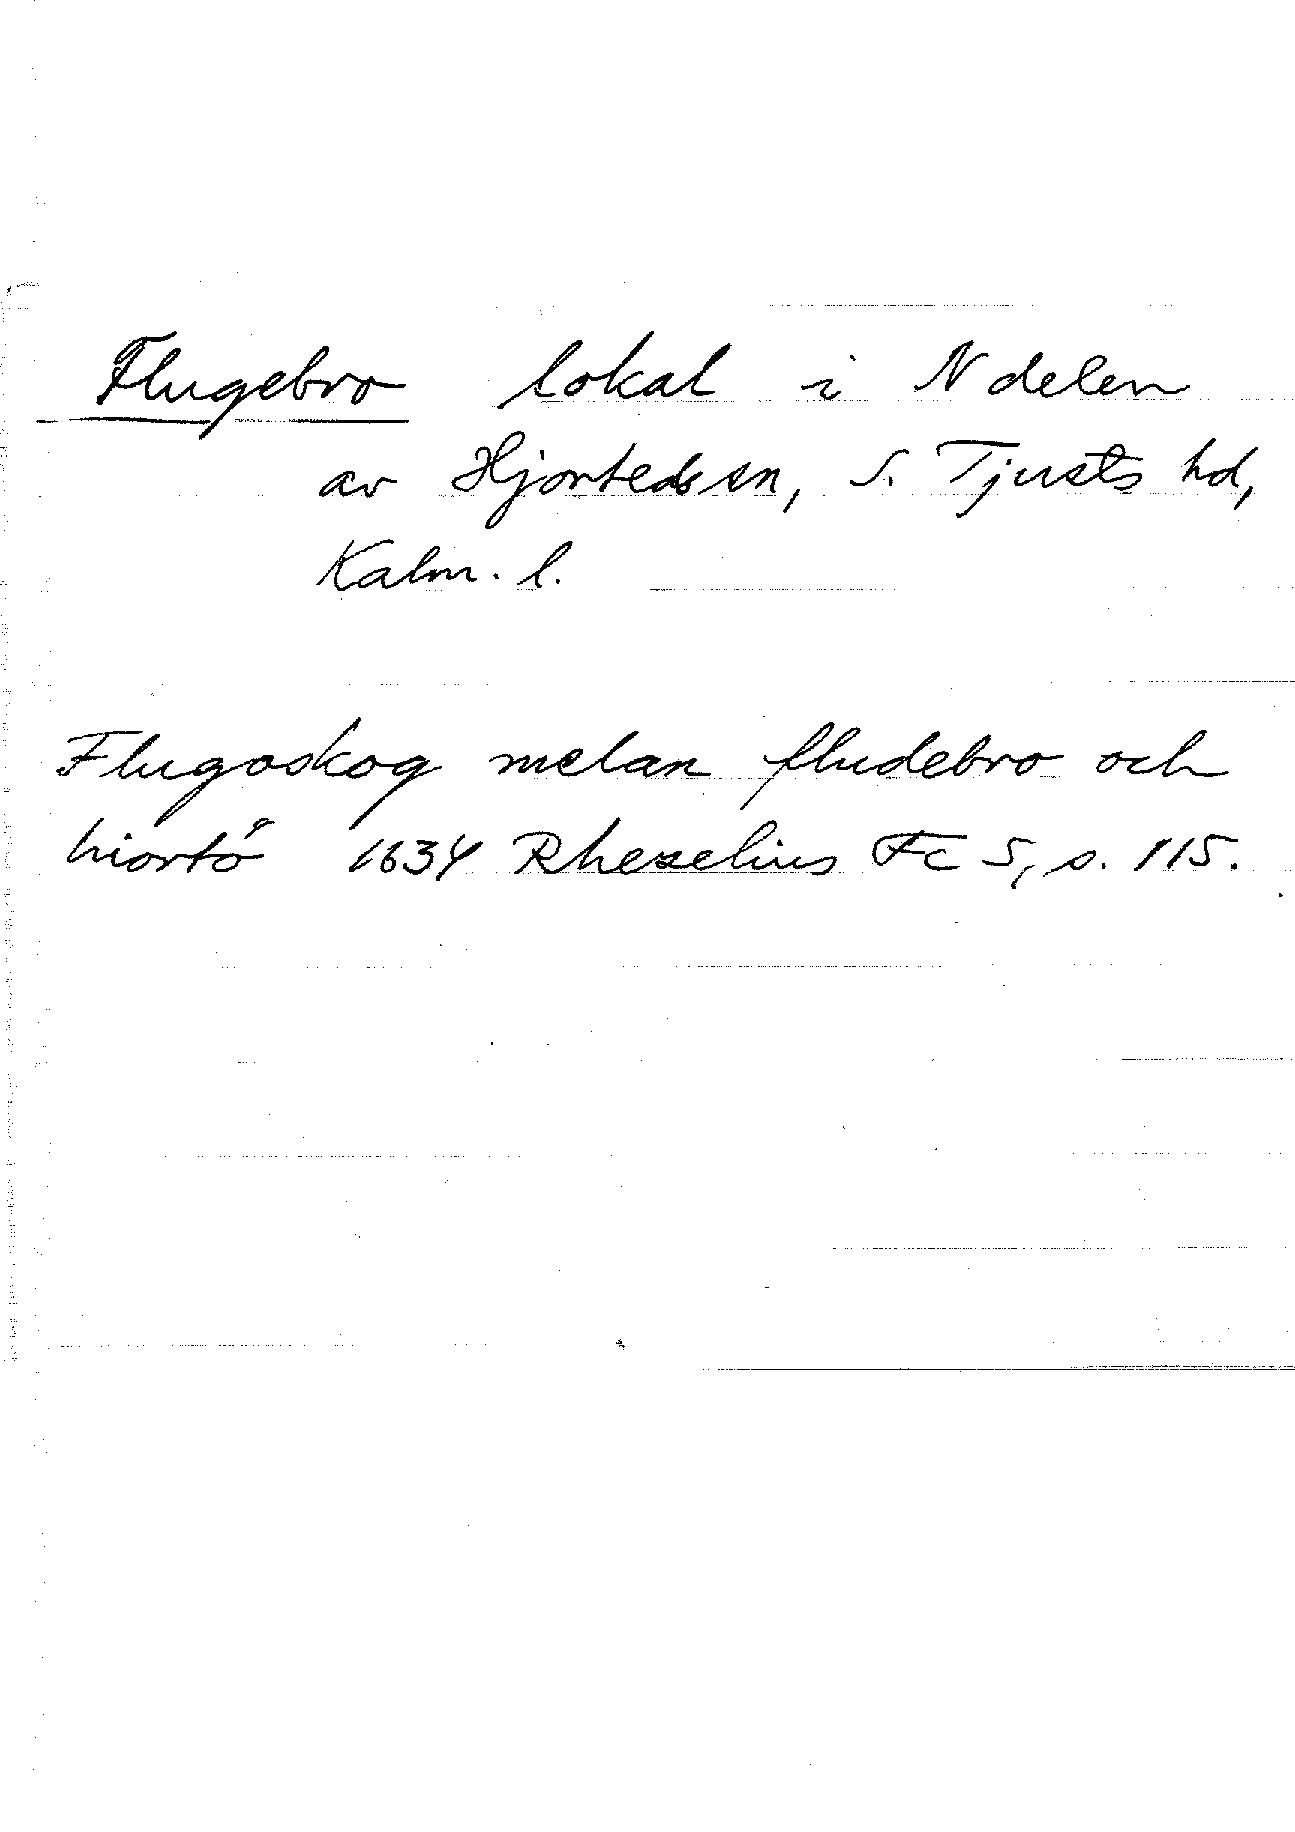 Flugebro lokal i N delen
av Hjorteds sn, S. Tjusts hd,
Kalm. l.
Flugoskog melan fludebro och
hiortö 1634 Rhezelius Fc 5, s. 115.